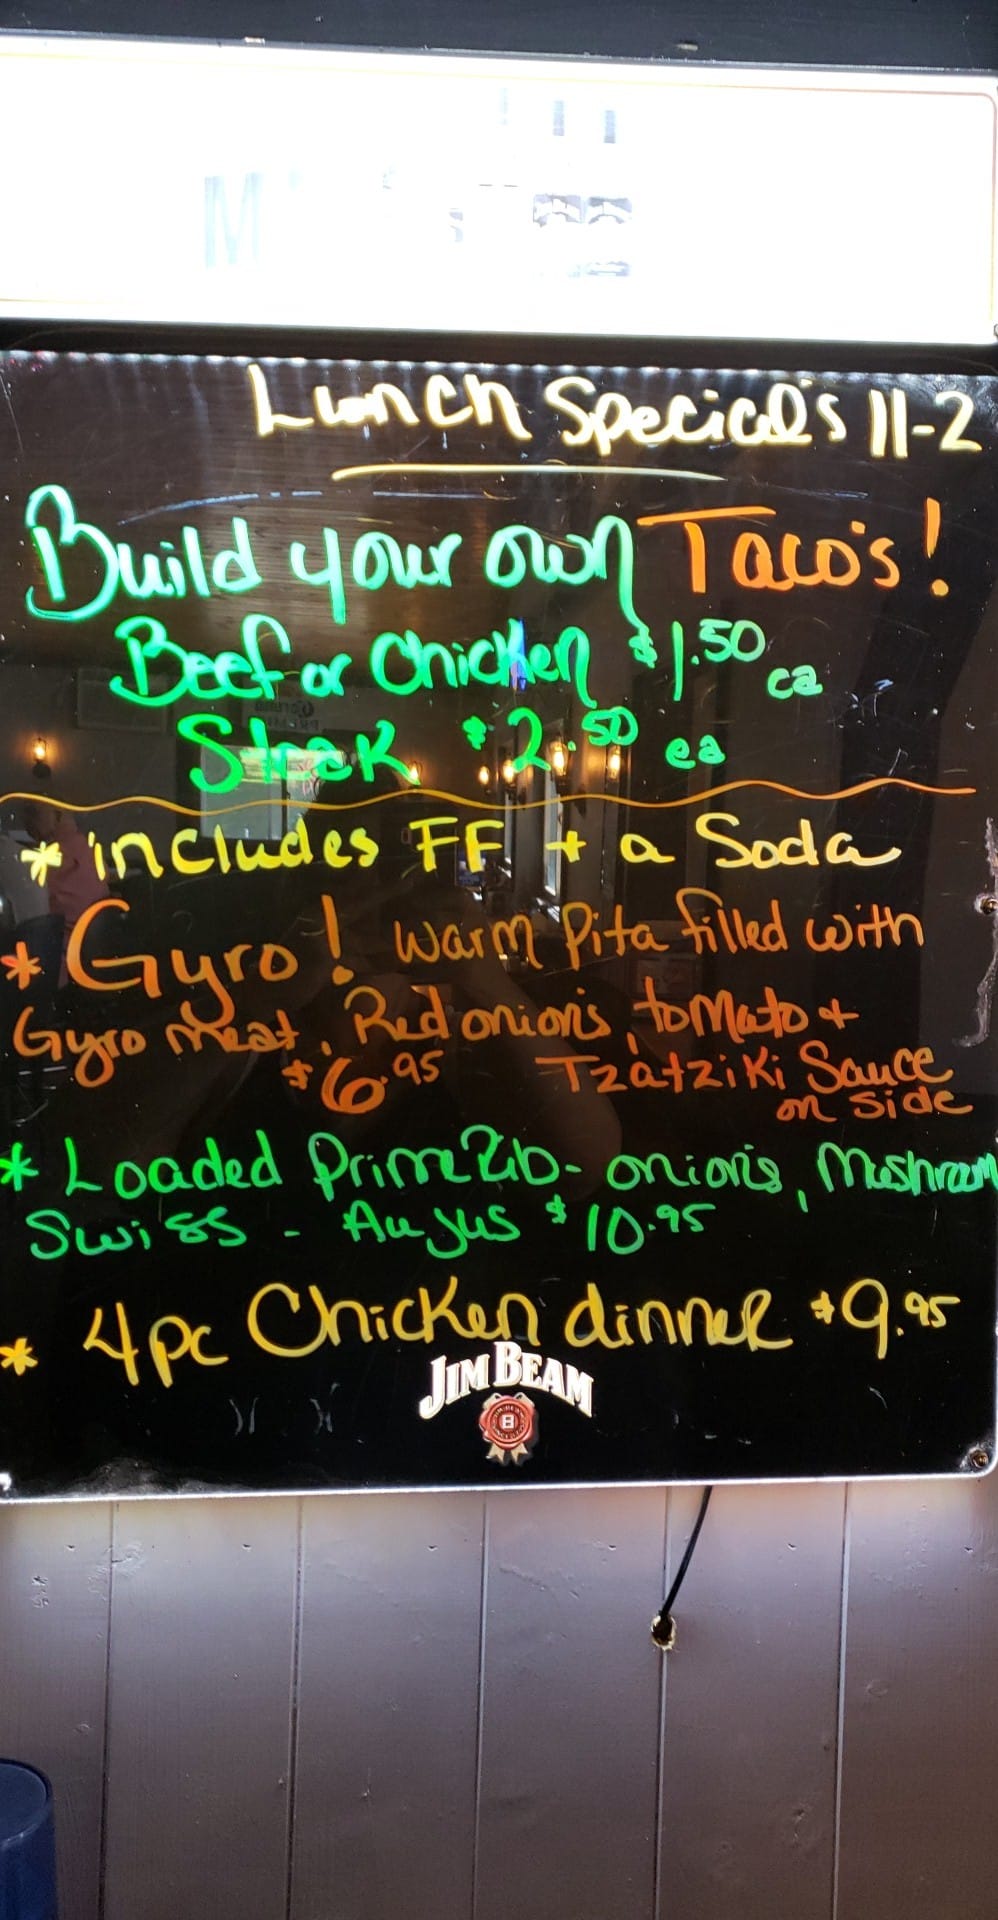 Lunch Special's 11-2
Build your own Taco's!
Beef or Chicken $1.50 ea
Steak $2.50 ea
* includes FF + a Soda
* Gyro! Warm Pita filled with
Gyro meat, Red onion's, tomato +
$6.95 Tzatziki Sauce
on side
* Loaded Prime Rib - onion's, Mushroom
Swiss - Au jus $10.95
* 4pc Chicken dinner $9.95
JIM BEAM
B